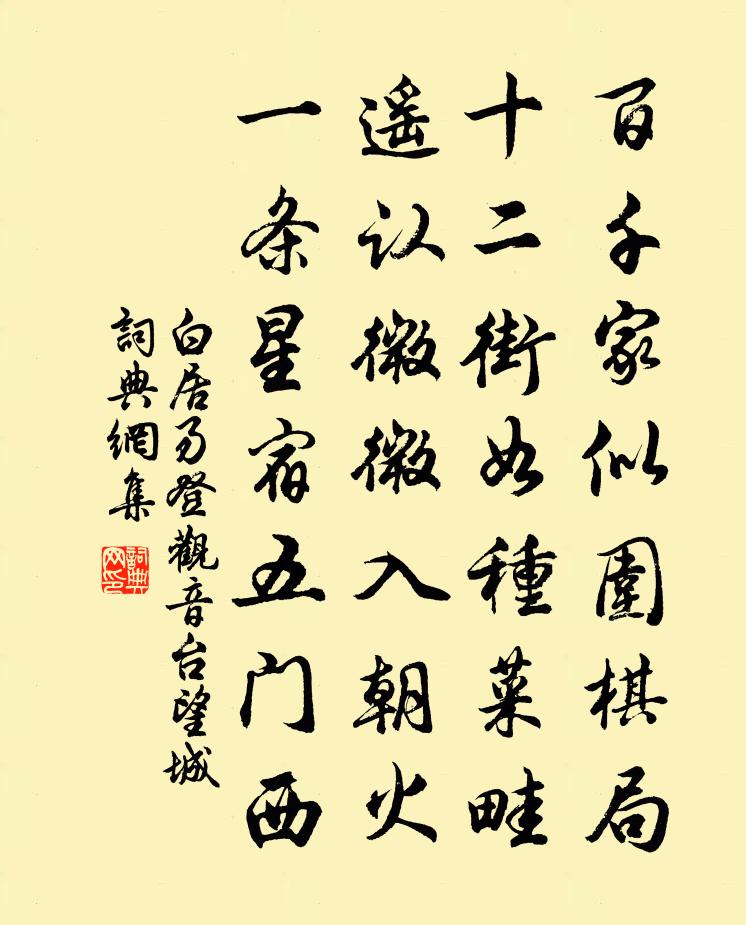 百千家似圍棋局
十二街如種菜畦
遥认微微入朝火
一条星宿五门西
白居易登觀音台望城
詞典網集
詞典
网印